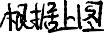 根据上图